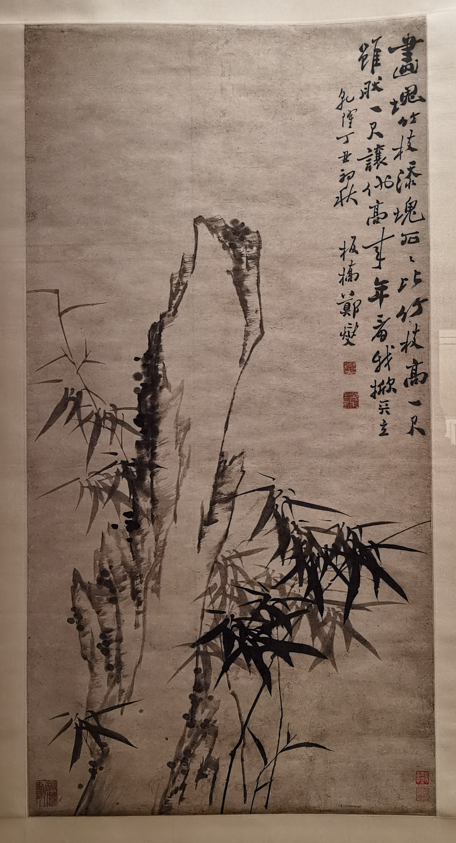 画塊竹枝添塊石石比竹枝高一尺
雖然一尺讓他高来年看我掀天立
乾隆丁丑初秋 板橋鄭燮